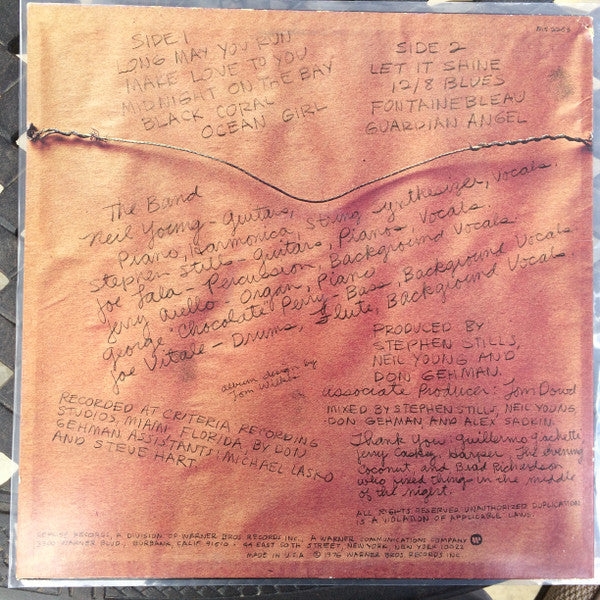 MS 2253
SIDE 1
LONG MAY YOU RUN
MAKE LOVE TO YOU
MIDNIGHT ON THE BAY
BLACK CORAL
OCEAN GIRL
SIDE 2
LET IT SHINE
12/8 BLUES
FONTAINEBLEAU
GUARDIAN ANGEL
The Band
Neil Young - Guitars,
Piano, Harmonica, String Synthesizer, Vocals.
Stephen Stills - Guitars, Pianos, Vocals.
Joe Lala - Percussion, Background Vocals.
Jerry Aiello - Organ, Piano
George "Chocolate" Perry - Bass, Background Vocals
Joe Vitale - Drums, Flute, Background Vocals.
album design by
Tom Wilkes
PRODUCED BY
STEPHEN STILLS,
NEIL YOUNG AND
DON GEHMAN.
Associate Producer: Tom Dowd
MIXED BY STEPHEN STILLS, NEIL YOUNG,
DON GEHMAN AND ALEX SADKIN.
RECORDED AT CRITERIA RECORDING
STUDIOS, MIAMI, FLORIDA, BY DON
GEHMAN. ASSISTANTS: MICHAEL LASKO
AND STEVE HART.
Thank You: Guillermo Giachetti
Jerry Caskey Harper The evening
Coconut and Brad Richardson
who fixed things in the middle
of the night.
ALL RIGHTS RESERVED. UNAUTHORIZED DUPLICATION
IS A VIOLATION OF APPLICABLE LAWS.
REPRISE RECORDS, A DIVISION OF WARNER BROS. RECORDS INC., A WARNER COMMUNICATIONS COMPANY
3300 WARNER BLVD., BURBANK, CALIF. 91510 • 44 EAST 50TH STREET, NEW YORK, NEW YORK 10022
MADE IN U.S.A. © 1976 WARNER BROS. RECORDS INC.